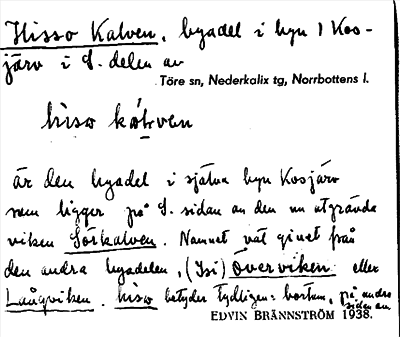 Hisso Kalven, byadel i byn 1 Kos-
järv i S. delen av
Töre sn, Nederkalix tg, Norrbottens l.
hiso kalven
är den byadel i själva byn Kosjärv
som ligger på S. sidan av den nu utgrävda
viken Sörkalven. Namnet väl givet från
den andra byadelen, (Isi) Överviken eller
Långviken. hiso betyder tydligen: bortom, på andra
sidan av.
EDVIN BRÄNNSTRÖM 1938.